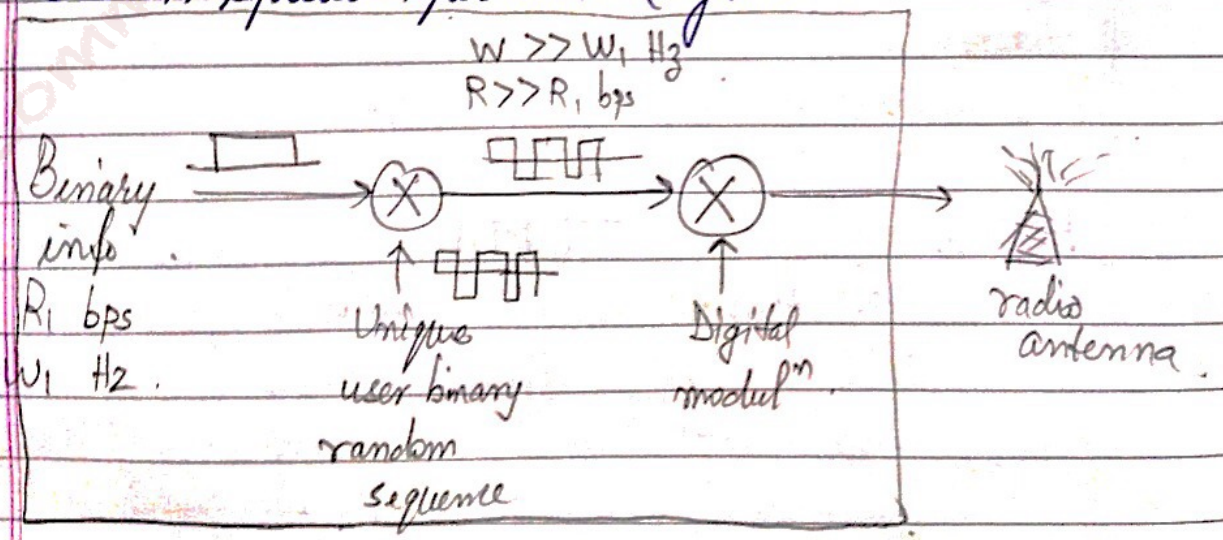 W >> W1 Hz
R >> R1 bps
Binary
info
R1 bps
W1 Hz.
X
X
Unique
user binary
random
sequence
Digital
modulⁿ.
radio
antenna.